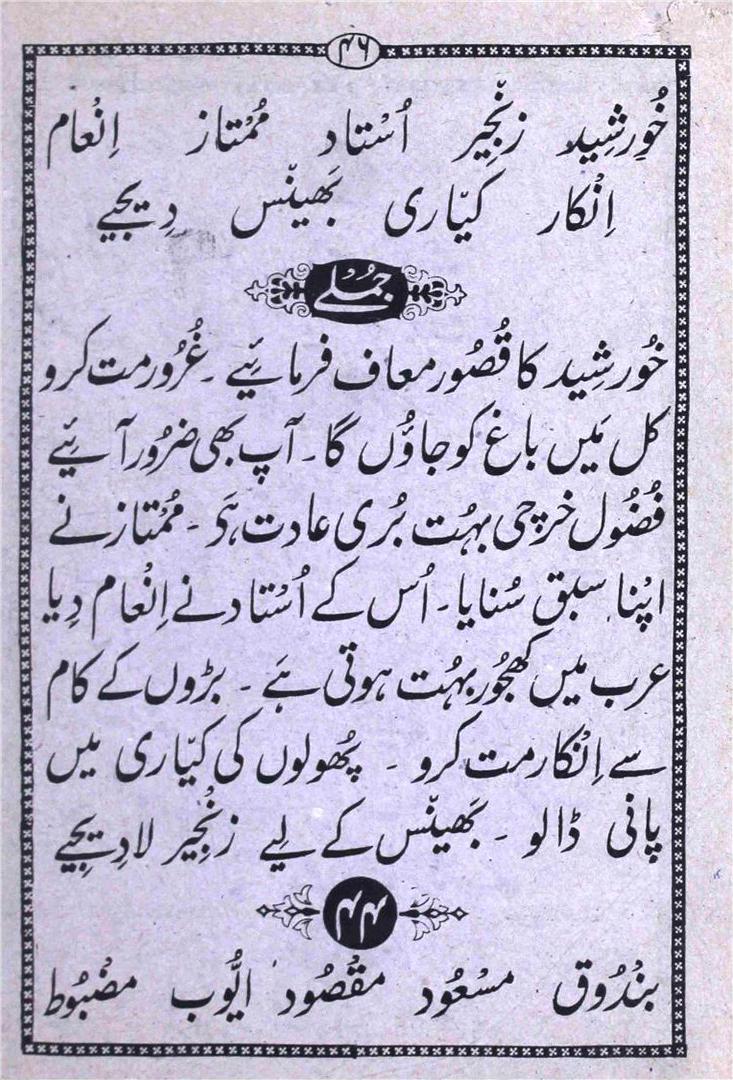 ۴۶
خُورشِید زنّجِیر اُسْتاد مُمْتاز اِنْعام
اِنْکار کیّاری بَھینّس دِیجیے
جُملے
خُورشِید کا قُصُور معاف فرمائیے ۔ غُرُور مت کرو
کل مَیں باغ کو جاؤں گا ۔ آپ بھی ضرُور آئیے
فضُول خرچی بہُت بُری عادت ہَے ۔ مُمْتاز نے
اپْنا سبق سُنایا ۔ اُس کے اُسْتاد نے اِنْعام دِیا
عرب میں کھجُور بہُت ہوتی ہَے ۔ بڑوں کے کام
سے اِنْکار مت کرو ۔ پھُولوں کی کیّاری میں
پانی ڈالو ۔ بَھینّس کے لیے زنْجِیر لا دِیجیے
۴۴
بنْدُوق مسْعُود مقْصُود ایُّوب مضْبُوط